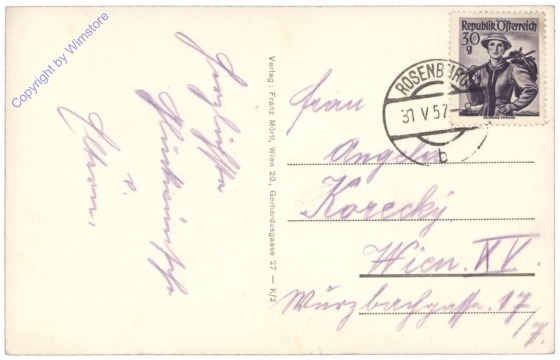 Copyright by Wimstore
Herzlichste
Glückwünsche
v.
Eltern.
Verlag: Franz Mörtl, Wien 20., Gerhardusgasse 27 — K/2
Republik Österreich
30
g
ROSENBURG
31 V 57
b
Frau
Angela
Korecky
Wien XV.
Wurzbachgasse 17/7.